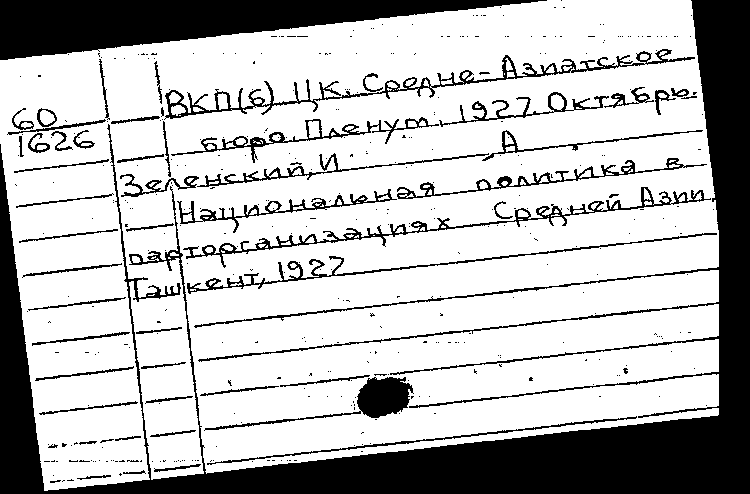 60
1626
ВКП(б) ЦК. Средне-Азиатское
бюро. Пленум, 1927. Октябрь.
Зеленский, И. А.
Национальная политика в
парторганизациях Средней Азии.
Ташкент, 1927